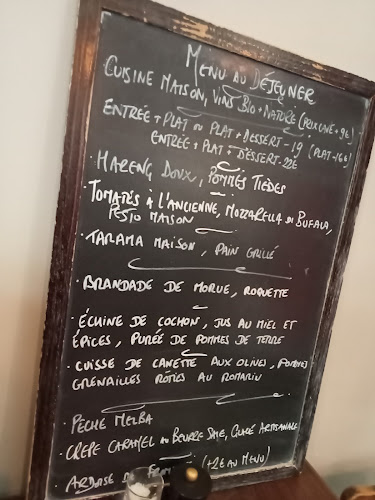 MENU AU DÉJEUNER
CUISINE MAISON, VINS BIO + NATURE (PRIX CAVE + 9€)
ENTRÉE + PLAT OU PLAT + DESSERT - 19 (PLAT - 16€)
ENTRÉE + PLAT + DESSERT - 22€
· HARENG DOUX, POMMES TIÈDES
· TOMATES À L'ANCIENNE, MOZZARELLA DI BUFALA,
PESTO MAISON
· TARAMA MAISON, PAIN GRILLÉ
· BRANDADE DE MORUE, ROQUETTE
· ÉCHINE DE COCHON, JUS AU MIEL ET
ÉPICES, PURÉE DE POMMES DE TERRE
· CUISSE DE CANETTE AUX OLIVES, POMMES
GRENAILLES RÔTIES AU ROMARIN
· PÊCHE MELBA
· CRÊPE CARAMEL AU BEURRE SALÉ, GLACE ARTISANALE
· ARDOISE DE (+2€ AU MENU)